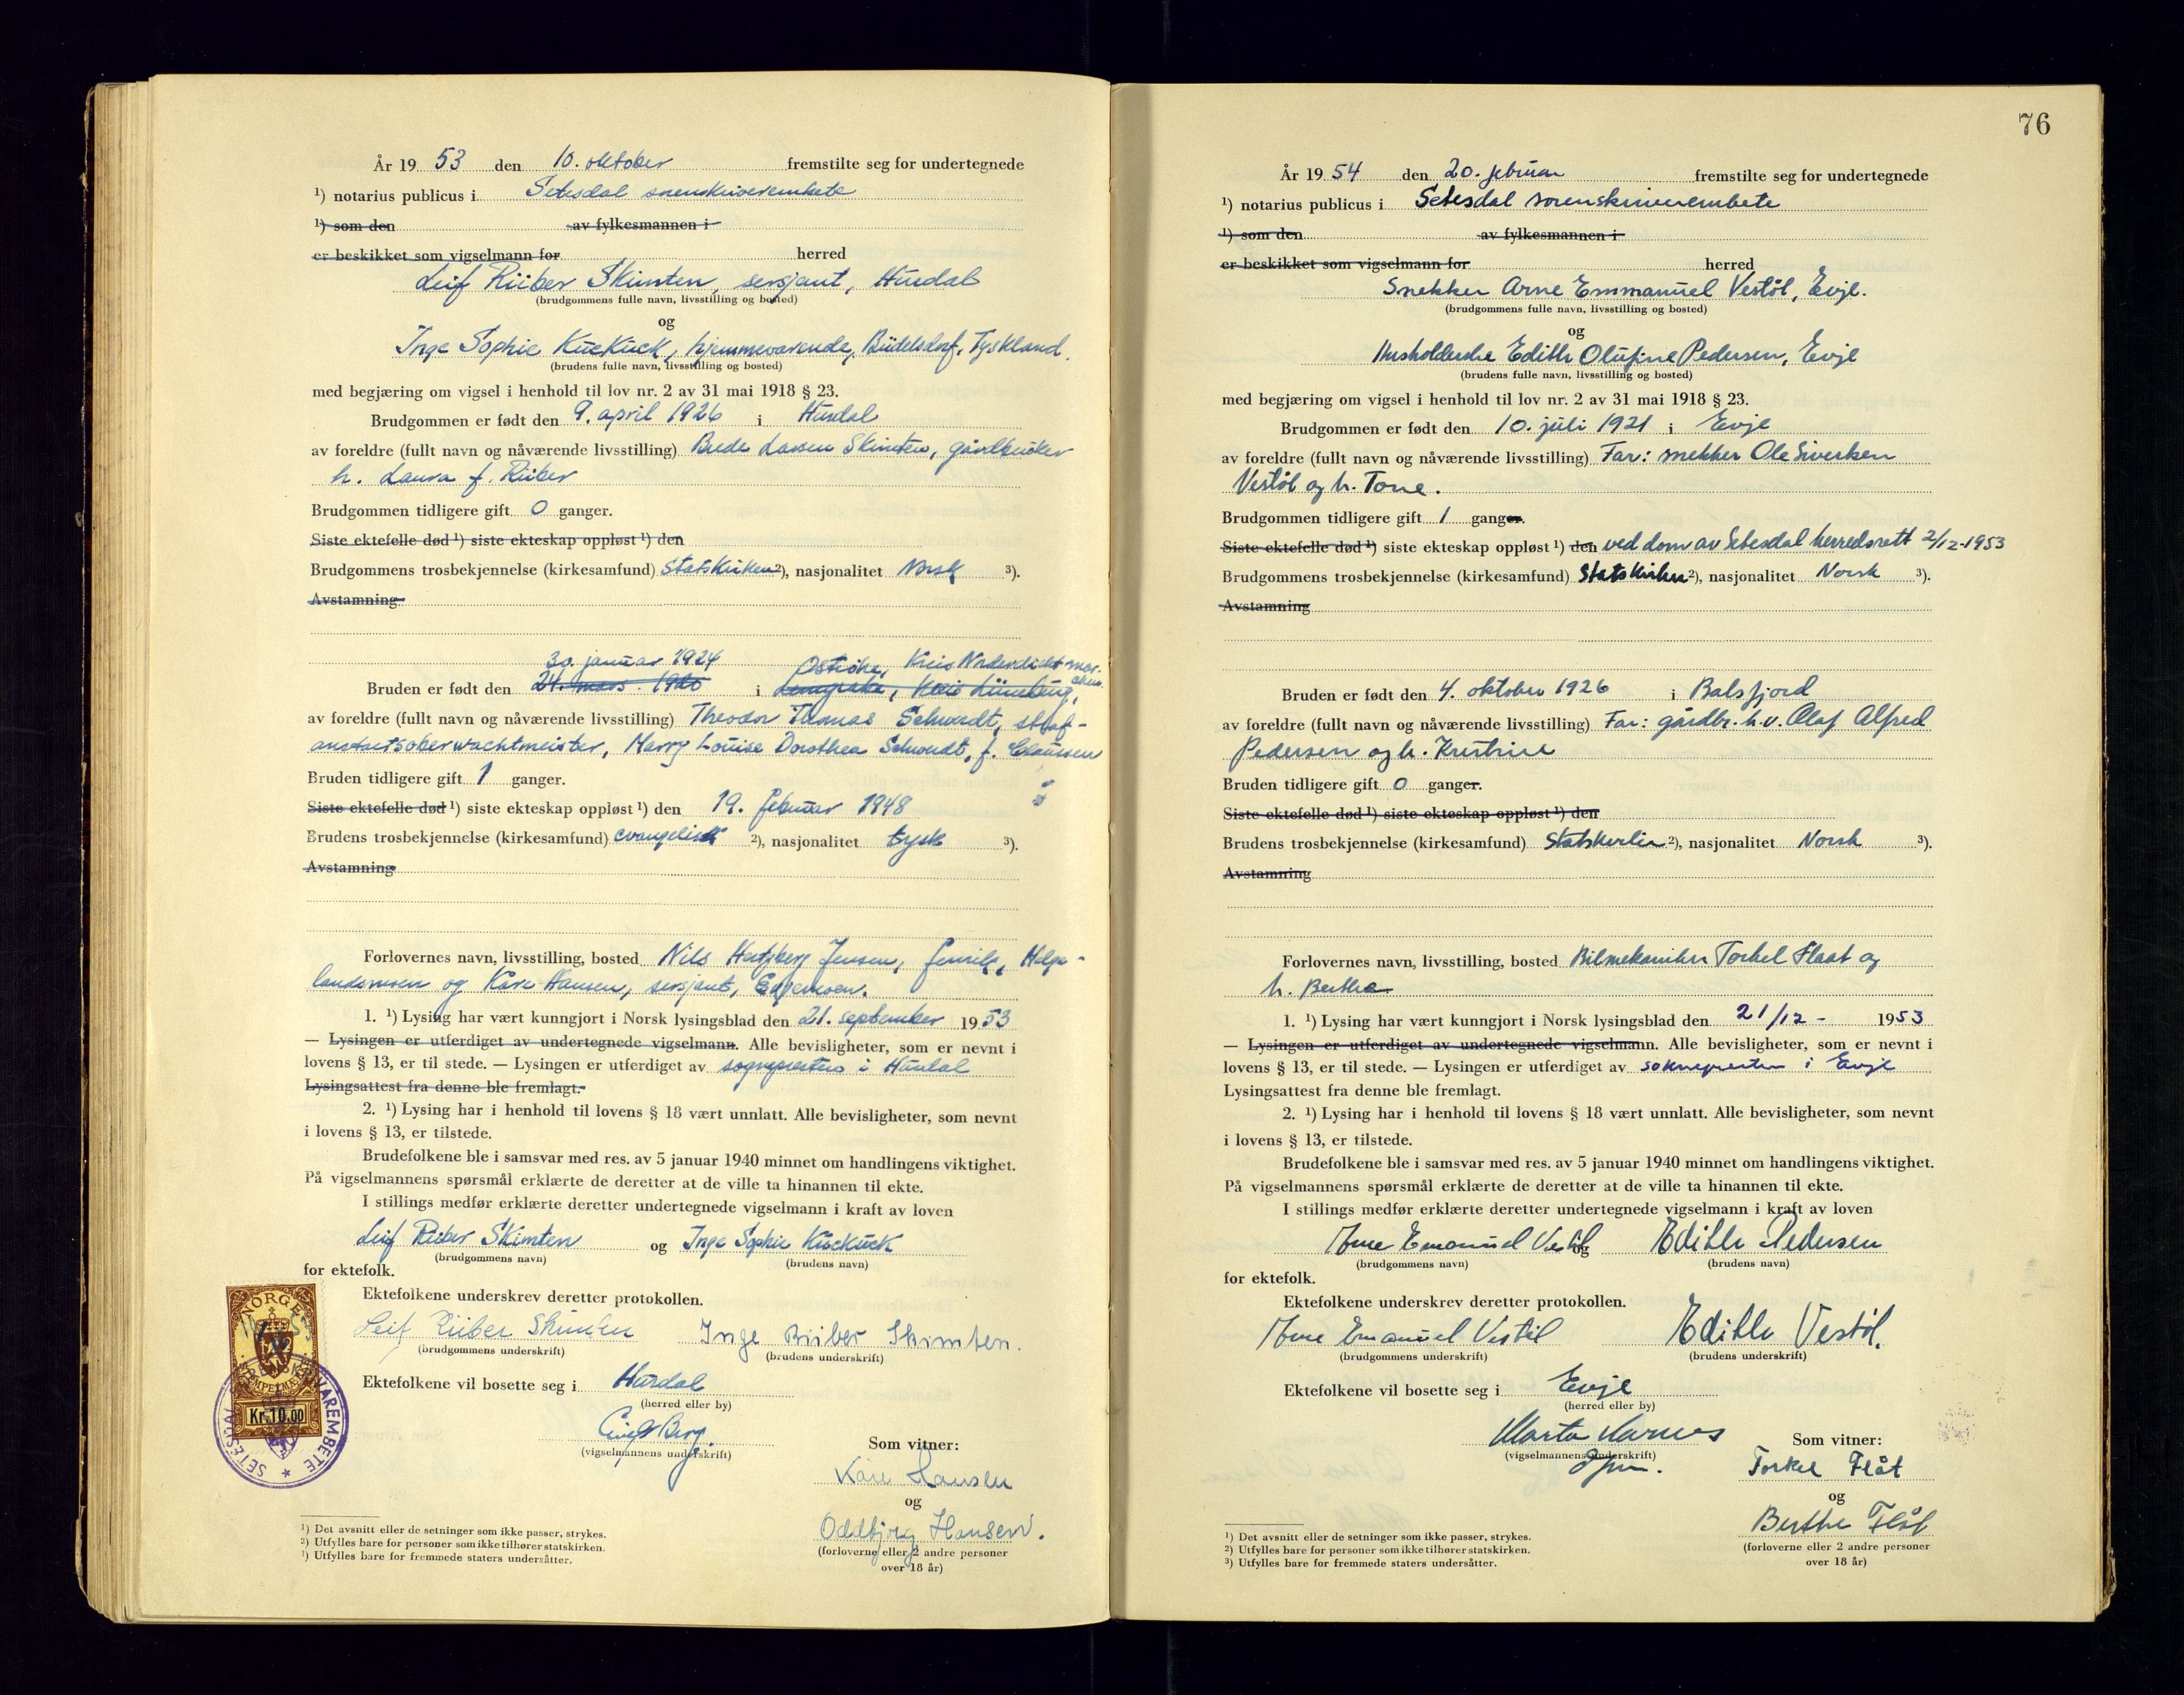 År 19 53 den 10. oktober fremstilte seg for undertegnede
¹) notarius publicus i Setesdal sorenskriverembete
¹) som den av fylkesmannen i
er beskikket som vigselmann for herred
Leif Rüber Skimten, sersjant, Hurdal
(brudgommens fulle navn, livsstilling og bosted)
og
Inge Sophie Kuckuck, hjemmeværende, Büdelsdorf, Tyskland.
(brudens fulle navn, livsstilling og bosted)
med begjæring om vigsel i henhold til lov nr. 2 av 31 mai 1918 § 23.
Brudgommen er født den 9. april 1926 i Hurdal
av foreldre (fullt navn og nåværende livsstilling) Brede Larsen Skimten, gårdbruker
h. Laura f. Rüber
Brudgommen tidligere gift 0 ganger.
Siste ektefelle død ¹) siste ekteskap oppløst ¹) den
Brudgommens trosbekjennelse (kirkesamfund) Statskirken ²), nasjonalitet Norsk ³).
Avstamning
30. januar 1924 Kreis Norderdithmarschen
Bruden er født den 24. mars 1920 i
av foreldre (fullt navn og nåværende livsstilling) Theodor Thomas Schwardt, straf-
anstaltsoberwachtmeister, Marry Louise Dorothea Schwardt, f. Claussen
Bruden tidligere gift 1 ganger.
Siste ektefelle død ¹) siste ekteskap oppløst ¹) den 19. februar 1948
Brudens trosbekjennelse (kirkesamfund) evangelisk ²), nasjonalitet tysk ³).
Avstamning
Forlovernes navn, livsstilling, bosted Nils Hertzberg Jensen, fenrik, Helge-
landsmoen og Kåre Hansen, sersjant, Evjemoen.
1. ¹) Lysing har vært kunngjort i Norsk lysingsblad den 21. september 19 53
— Lysingen er utferdiget av undertegnede vigselmann. Alle bevisligheter, som er nevnt i
lovens § 13, er til stede. — Lysingen er utferdiget av sognepresten i Hurdal
Lysingsattest fra denne ble fremlagt.
2. ¹) Lysing har i henhold til lovens § 18 vært unnlatt. Alle bevisligheter, som nevnt
i lovens § 13, er tilstede.
Brudefolkene ble i samsvar med res. av 5 januar 1940 minnet om handlingens viktighet.
På vigselmannens spørsmål erklærte de deretter at de ville ta hinannen til ekte.
I stillings medfør erklærte deretter undertegnede vigselmann i kraft av loven
Leif Rüber Skimten og Inge Sophie Kuckuck
(brudgommens navn) (brudens navn)
for ektefolk.
Ektefolkene underskrev deretter protokollen.
Leif Rüber Skimten Inge Rüber Skimten.
(brudgommens underskrift) (brudens underskrift)
Ektefolkene vil bosette seg i Hurdal
(herred eller by)
Berg.
(vigselmannens underskrift)
Som vitner:
Kåre Hansen
og
Oddbjørg Hansen.
(forloverne eller 2 andre personer
over 18 år)
NORGE
Kr. 10,00
SETESDAL SORENSKRIVAREMBETE
¹) Det avsnitt eller de setninger som ikke passer, strykes.
²) Utfylles bare for personer som ikke tilhører statskirken.
³) Utfylles bare for fremmede staters undersåtter.
76
År 19 54 den 20. februar fremstilte seg for undertegnede
¹) notarius publicus i Setesdal sorenskriverembete
¹) som den av fylkesmannen i
er beskikket som vigselmann for herred
Snekker Arne Emmanuel Vestøl, Evje.
(brudgommens fulle navn, livsstilling og bosted)
og
Husholderske Edith Olufine Pedersen, Evje
(brudens fulle navn, livsstilling og bosted)
med begjæring om vigsel i henhold til lov nr. 2 av 31 mai 1918 § 23.
Brudgommen er født den 10. juli 1921 i Evje
av foreldre (fullt navn og nåværende livsstilling) Far: snekker Ole Sivertsen
Vestøl og h. Tone.
Brudgommen tidligere gift 1 ganger.
Siste ektefelle død ¹) siste ekteskap oppløst ¹) den ved dom av Setesdal herredsrett 2/12-1953
Brudgommens trosbekjennelse (kirkesamfund) Statskirken ²), nasjonalitet Norsk ³).
Avstamning
Bruden er født den 4. oktober 1926 i Balsfjord
av foreldre (fullt navn og nåværende livsstilling) Far: gårdbr. h.v. Olaf Alfred
Pedersen og h. Kristine
Bruden tidligere gift 0 ganger.
Siste ektefelle død ¹) siste ekteskap oppløst ¹) den
Brudens trosbekjennelse (kirkesamfund) Statskirken ²), nasjonalitet Norsk ³).
Avstamning
Forlovernes navn, livsstilling, bosted Bilmekaniker Torkel Flaat og
h. Berthe
1. ¹) Lysing har vært kunngjort i Norsk lysingsblad den 21/12 - 19 53
— Lysingen er utferdiget av undertegnede vigselmann. Alle bevisligheter, som er nevnt i
lovens § 13, er til stede. — Lysingen er utferdiget av soknepresten i Evje
Lysingsattest fra denne ble fremlagt.
2. ¹) Lysing har i henhold til lovens § 18 vært unnlatt. Alle bevisligheter, som nevnt
i lovens § 13, er tilstede.
Brudefolkene ble i samsvar med res. av 5 januar 1940 minnet om handlingens viktighet.
På vigselmannens spørsmål erklærte de deretter at de ville ta hinannen til ekte.
I stillings medfør erklærte deretter undertegnede vigselmann i kraft av loven
Arne Emanuel Vestøl og Edith Pedersen
(brudgommens navn) (brudens navn)
for ektefolk.
Ektefolkene underskrev deretter protokollen.
Arne Emanuel Vestøl Edith Vestøl.
(brudgommens underskrift) (brudens underskrift)
Ektefolkene vil bosette seg i Evje
(herred eller by)
(vigselmannens underskrift)
Som vitner:
Torkel Flåt
og
Berthe Flåt
(forloverne eller 2 andre personer
over 18 år)
¹) Det avsnitt eller de setninger som ikke passer, strykes.
²) Utfylles bare for personer som ikke tilhører statskirken.
³) Utfylles bare for fremmede staters undersåtter.